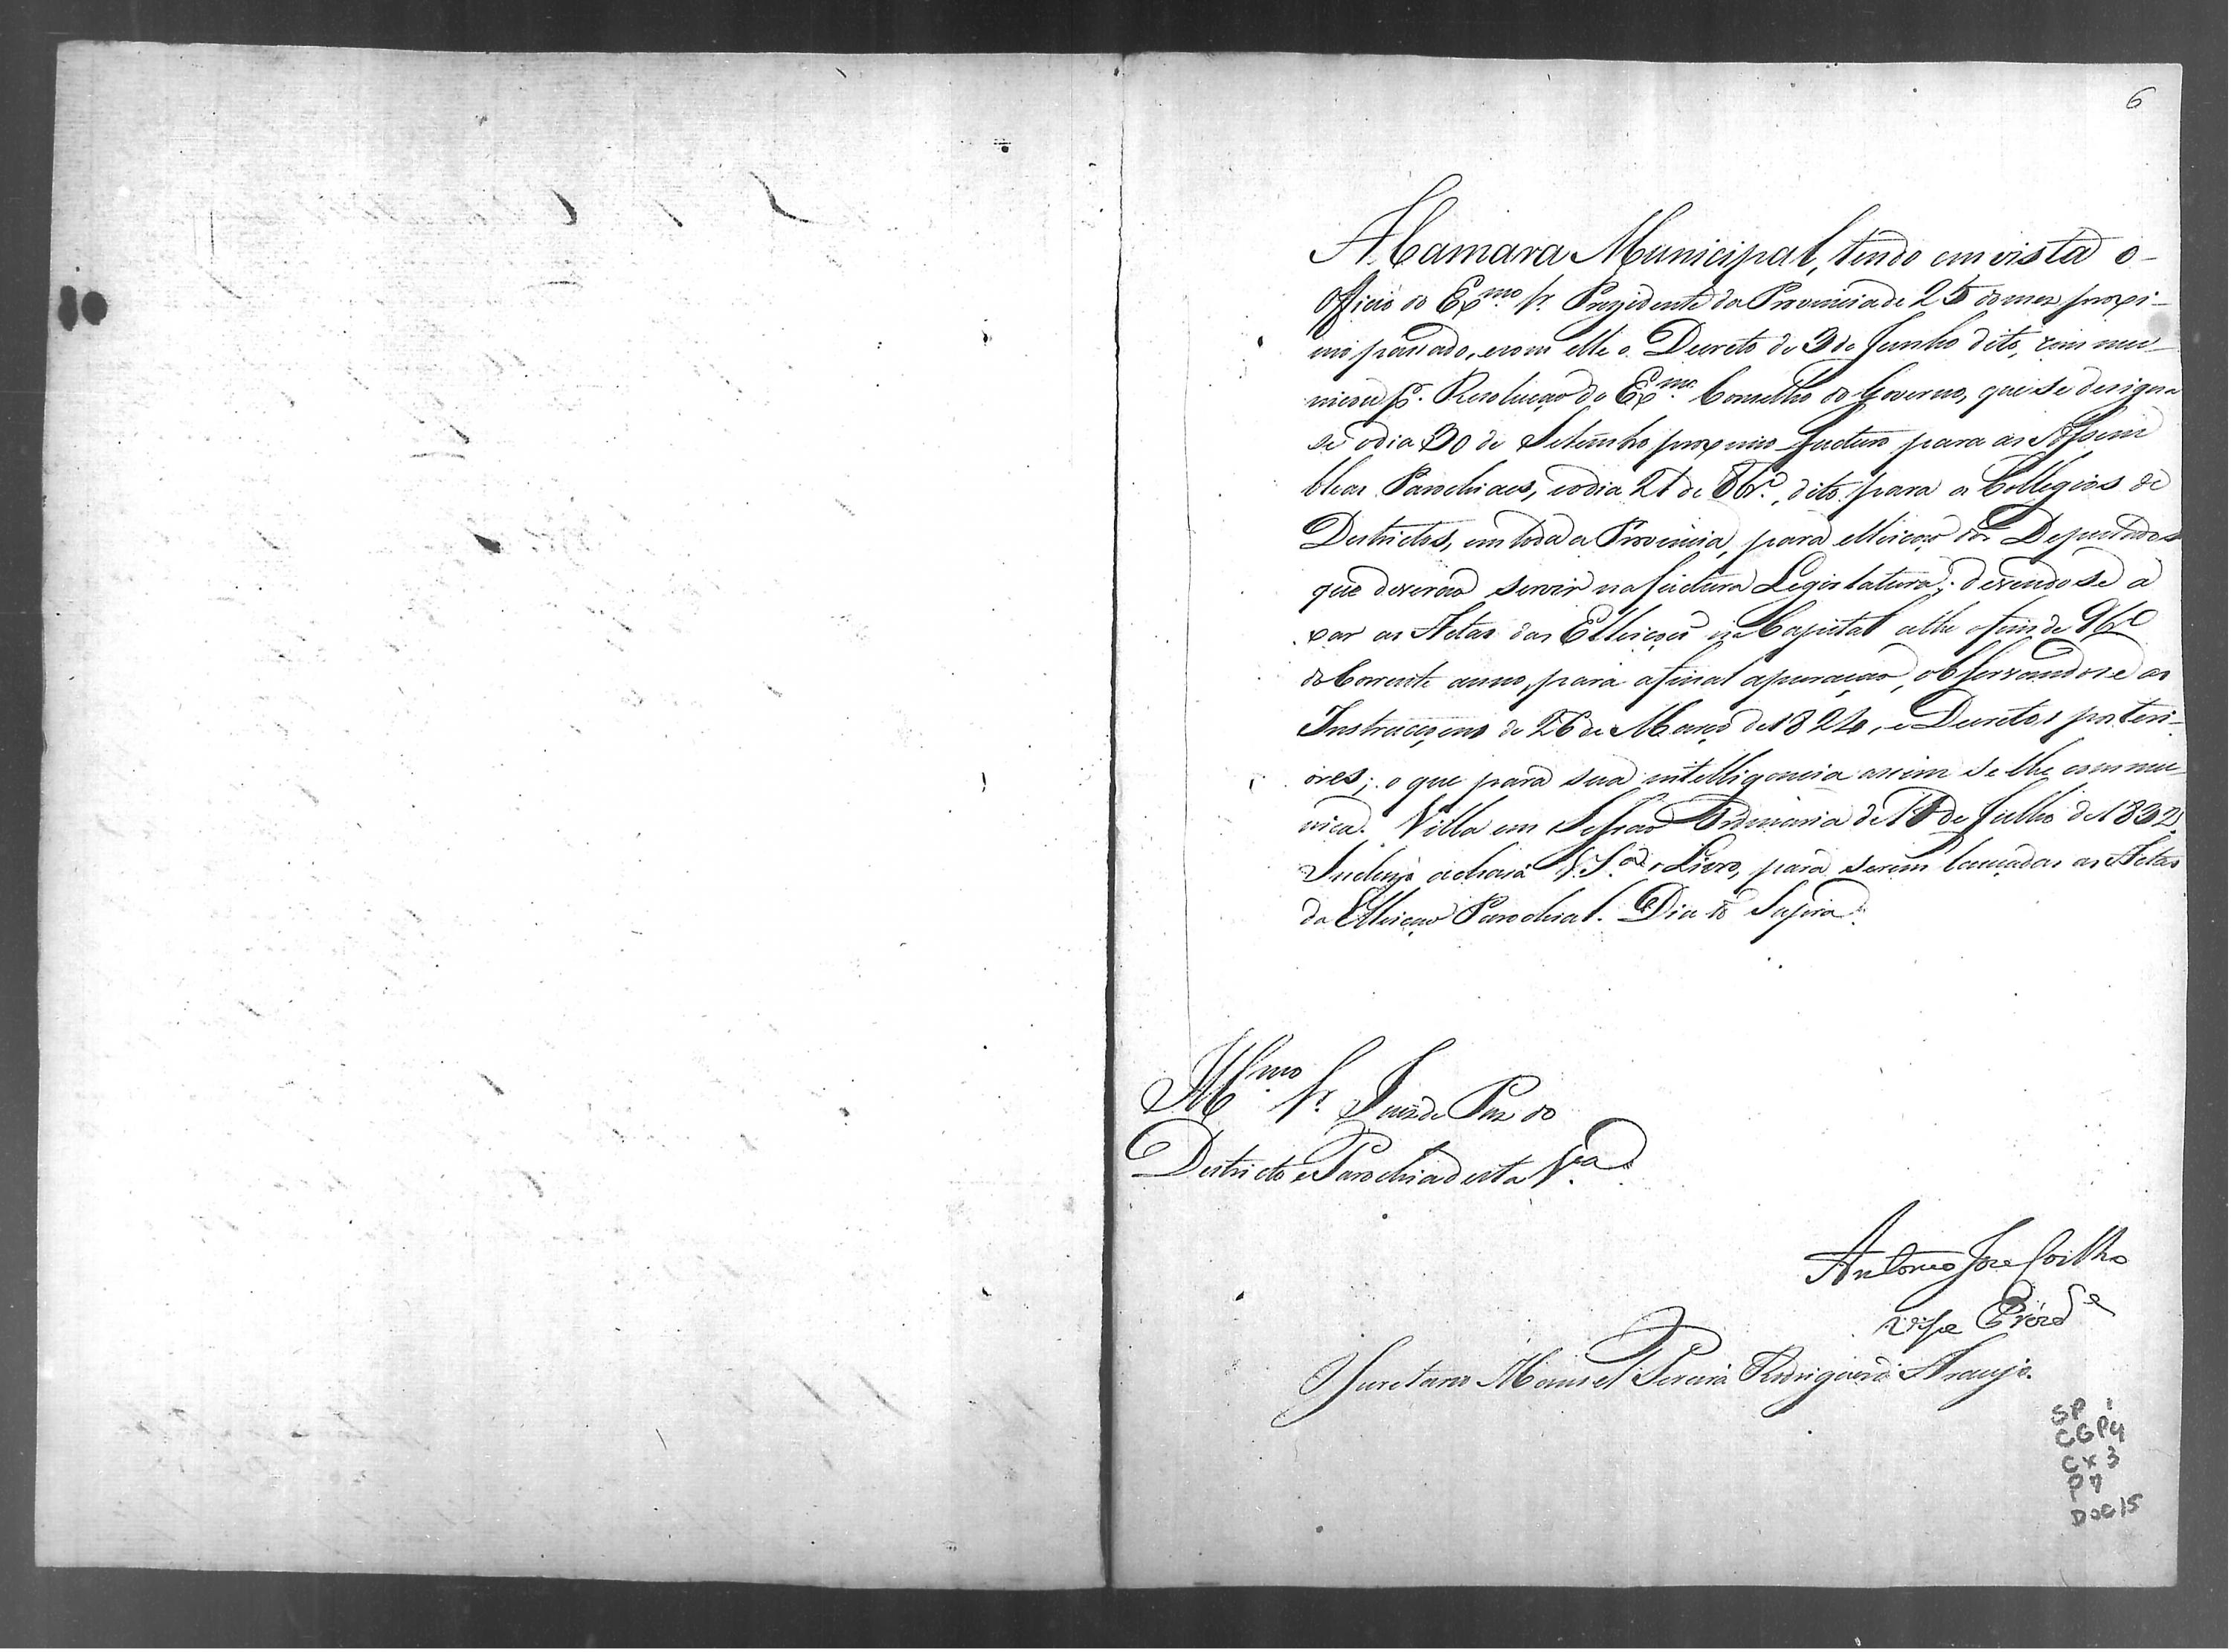 6
A Camara Municipal, tendo em vista o
Officio do Ex.mo Sr. Prezidente da Provincia de 25 do mez proxi-
mo passado, e com elle o Decreto de 3 de Junho dito, com mu-
nicou p.r Resolução do Ex.mo Conselho do Governo, que se designa
se o dia 30 de Setembro proximo fucturo para as Assem
bleas Parochiaes, e o dia 21 de 8br.o dito para os Collegios de
Destrictos, em toda a Provincia, para elleição dos Deputados
que deverão servir na fuctura Legislatura; devendo se a
xar as Actas das Elleiçoes na Capital athe o fim de 9br.o
do Corrente anno, para a final apuração, observandose as
Instrucçoens de 26 de Março de 1824, e Decretos posteri-
ores; o que para sua intelligencia assim se lhe commu-
nica. Villa em Sessão Ordinaria de 18 de Julho de 1832.
Incluzo achará V. S.a o Livro, para serem lançadas as Actas
da Elleição Parochial. Dia
Ill.mo Sr. Juiz de Paz do
Destricto e Parochia desta V.a
Antonio Jose Coelho
vise Prezd.e
O Secretario Manoel Pereira Rodrigues de Araujo.
SP 1
CGP4
Cx 3
P 7
Doc 15